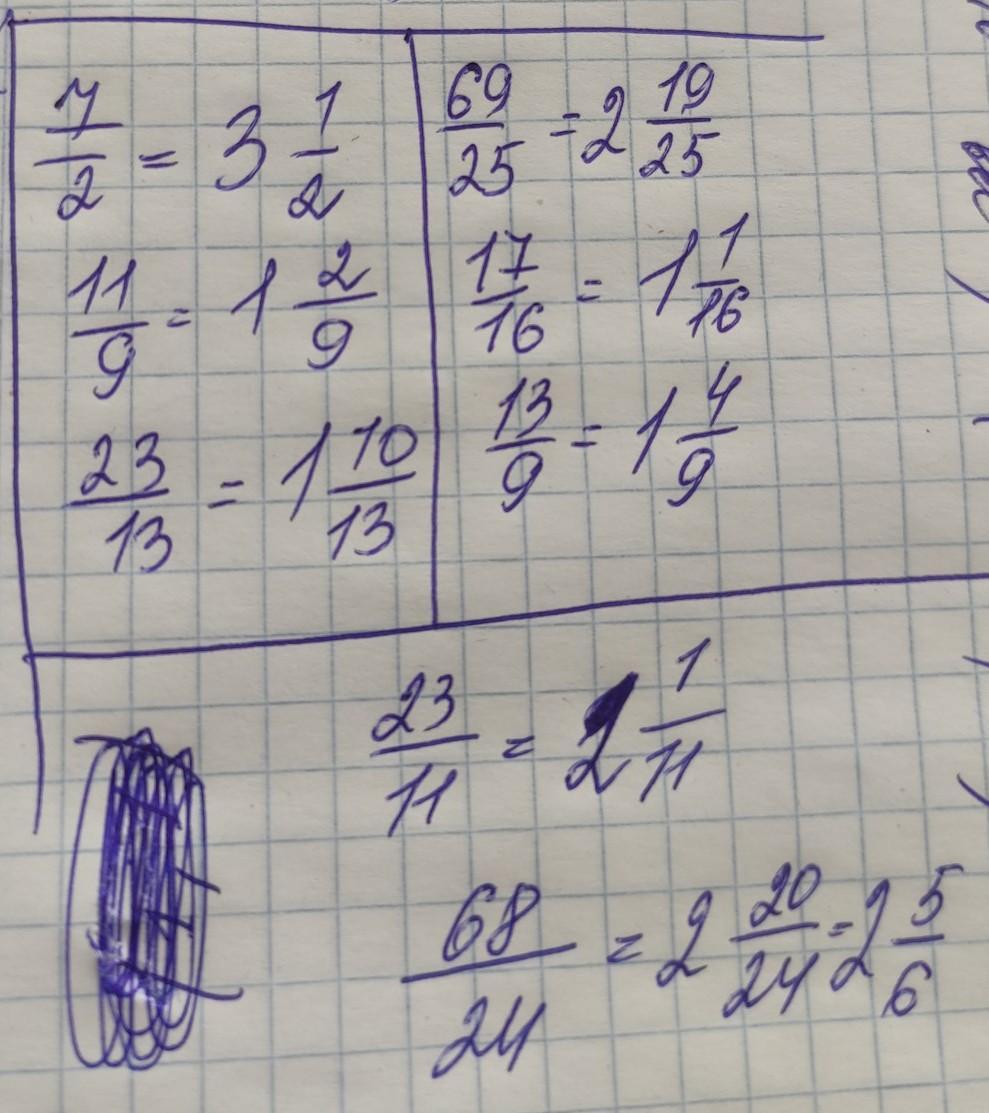 7/2 = 3 1/2
11/9 = 1 2/9
23/13 = 1 10/13
69/25 = 2 19/25
17/16 = 1 1/16
13/9 = 1 4/9
23/11 = 2 1/11
68/24 = 2 20/24 = 2 5/6